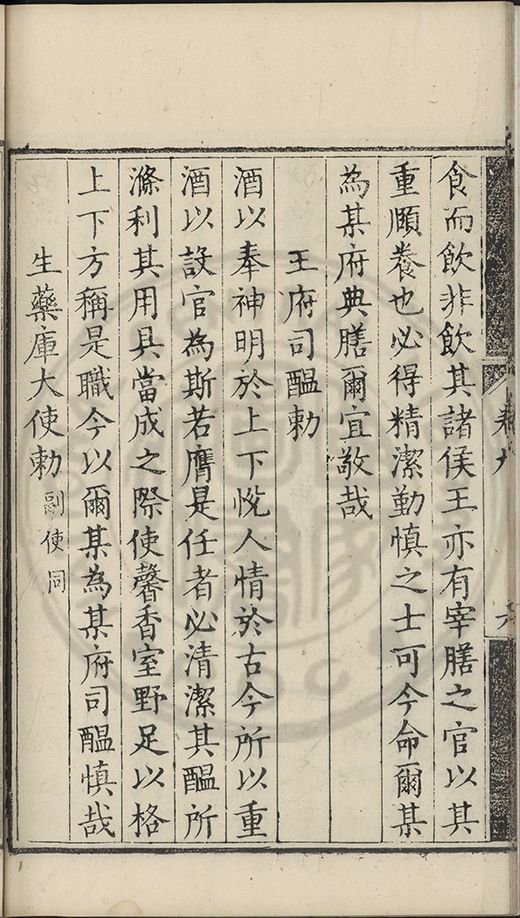 食而飲非飲其諸侯王亦有宰膳之官以其
重頤養也必得精潔勤慎之士可今命爾某
為某府典膳爾宜敬哉
王府司醞勅
酒以奉神明於上下悅人情於古今所以重
酒以設官為斯若膺是任者必清潔其醞所
滌利其用具當成之際使馨香室野足以格
上下方稱是職今以爾某為某府司醞慎哉
生藥庫大使勅 副使同
卷九